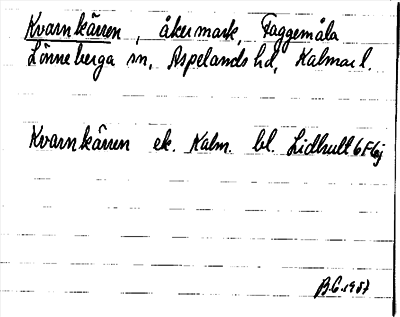 Kvarnkärren, åkermark, Faggemåla
Lönneberga sn, Aspelands hd, Kalmar l.
Kvarnkärren ek. Kalm. bl. Lidhult 6F6j
B.G. 1987